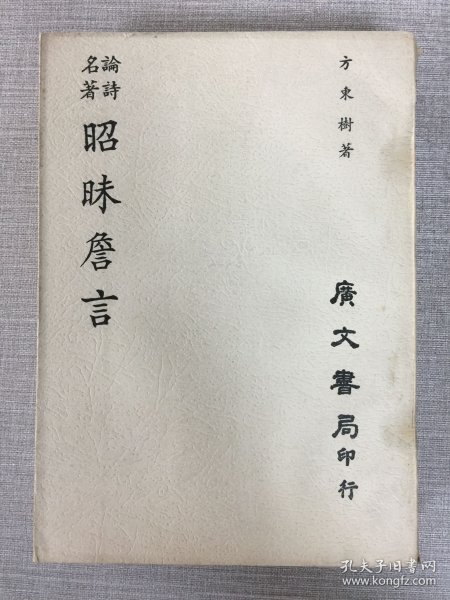 方東樹著
廣文書局印行
論詩
名著
昭昧詹言
孔夫子旧书网
www.kongfz.com